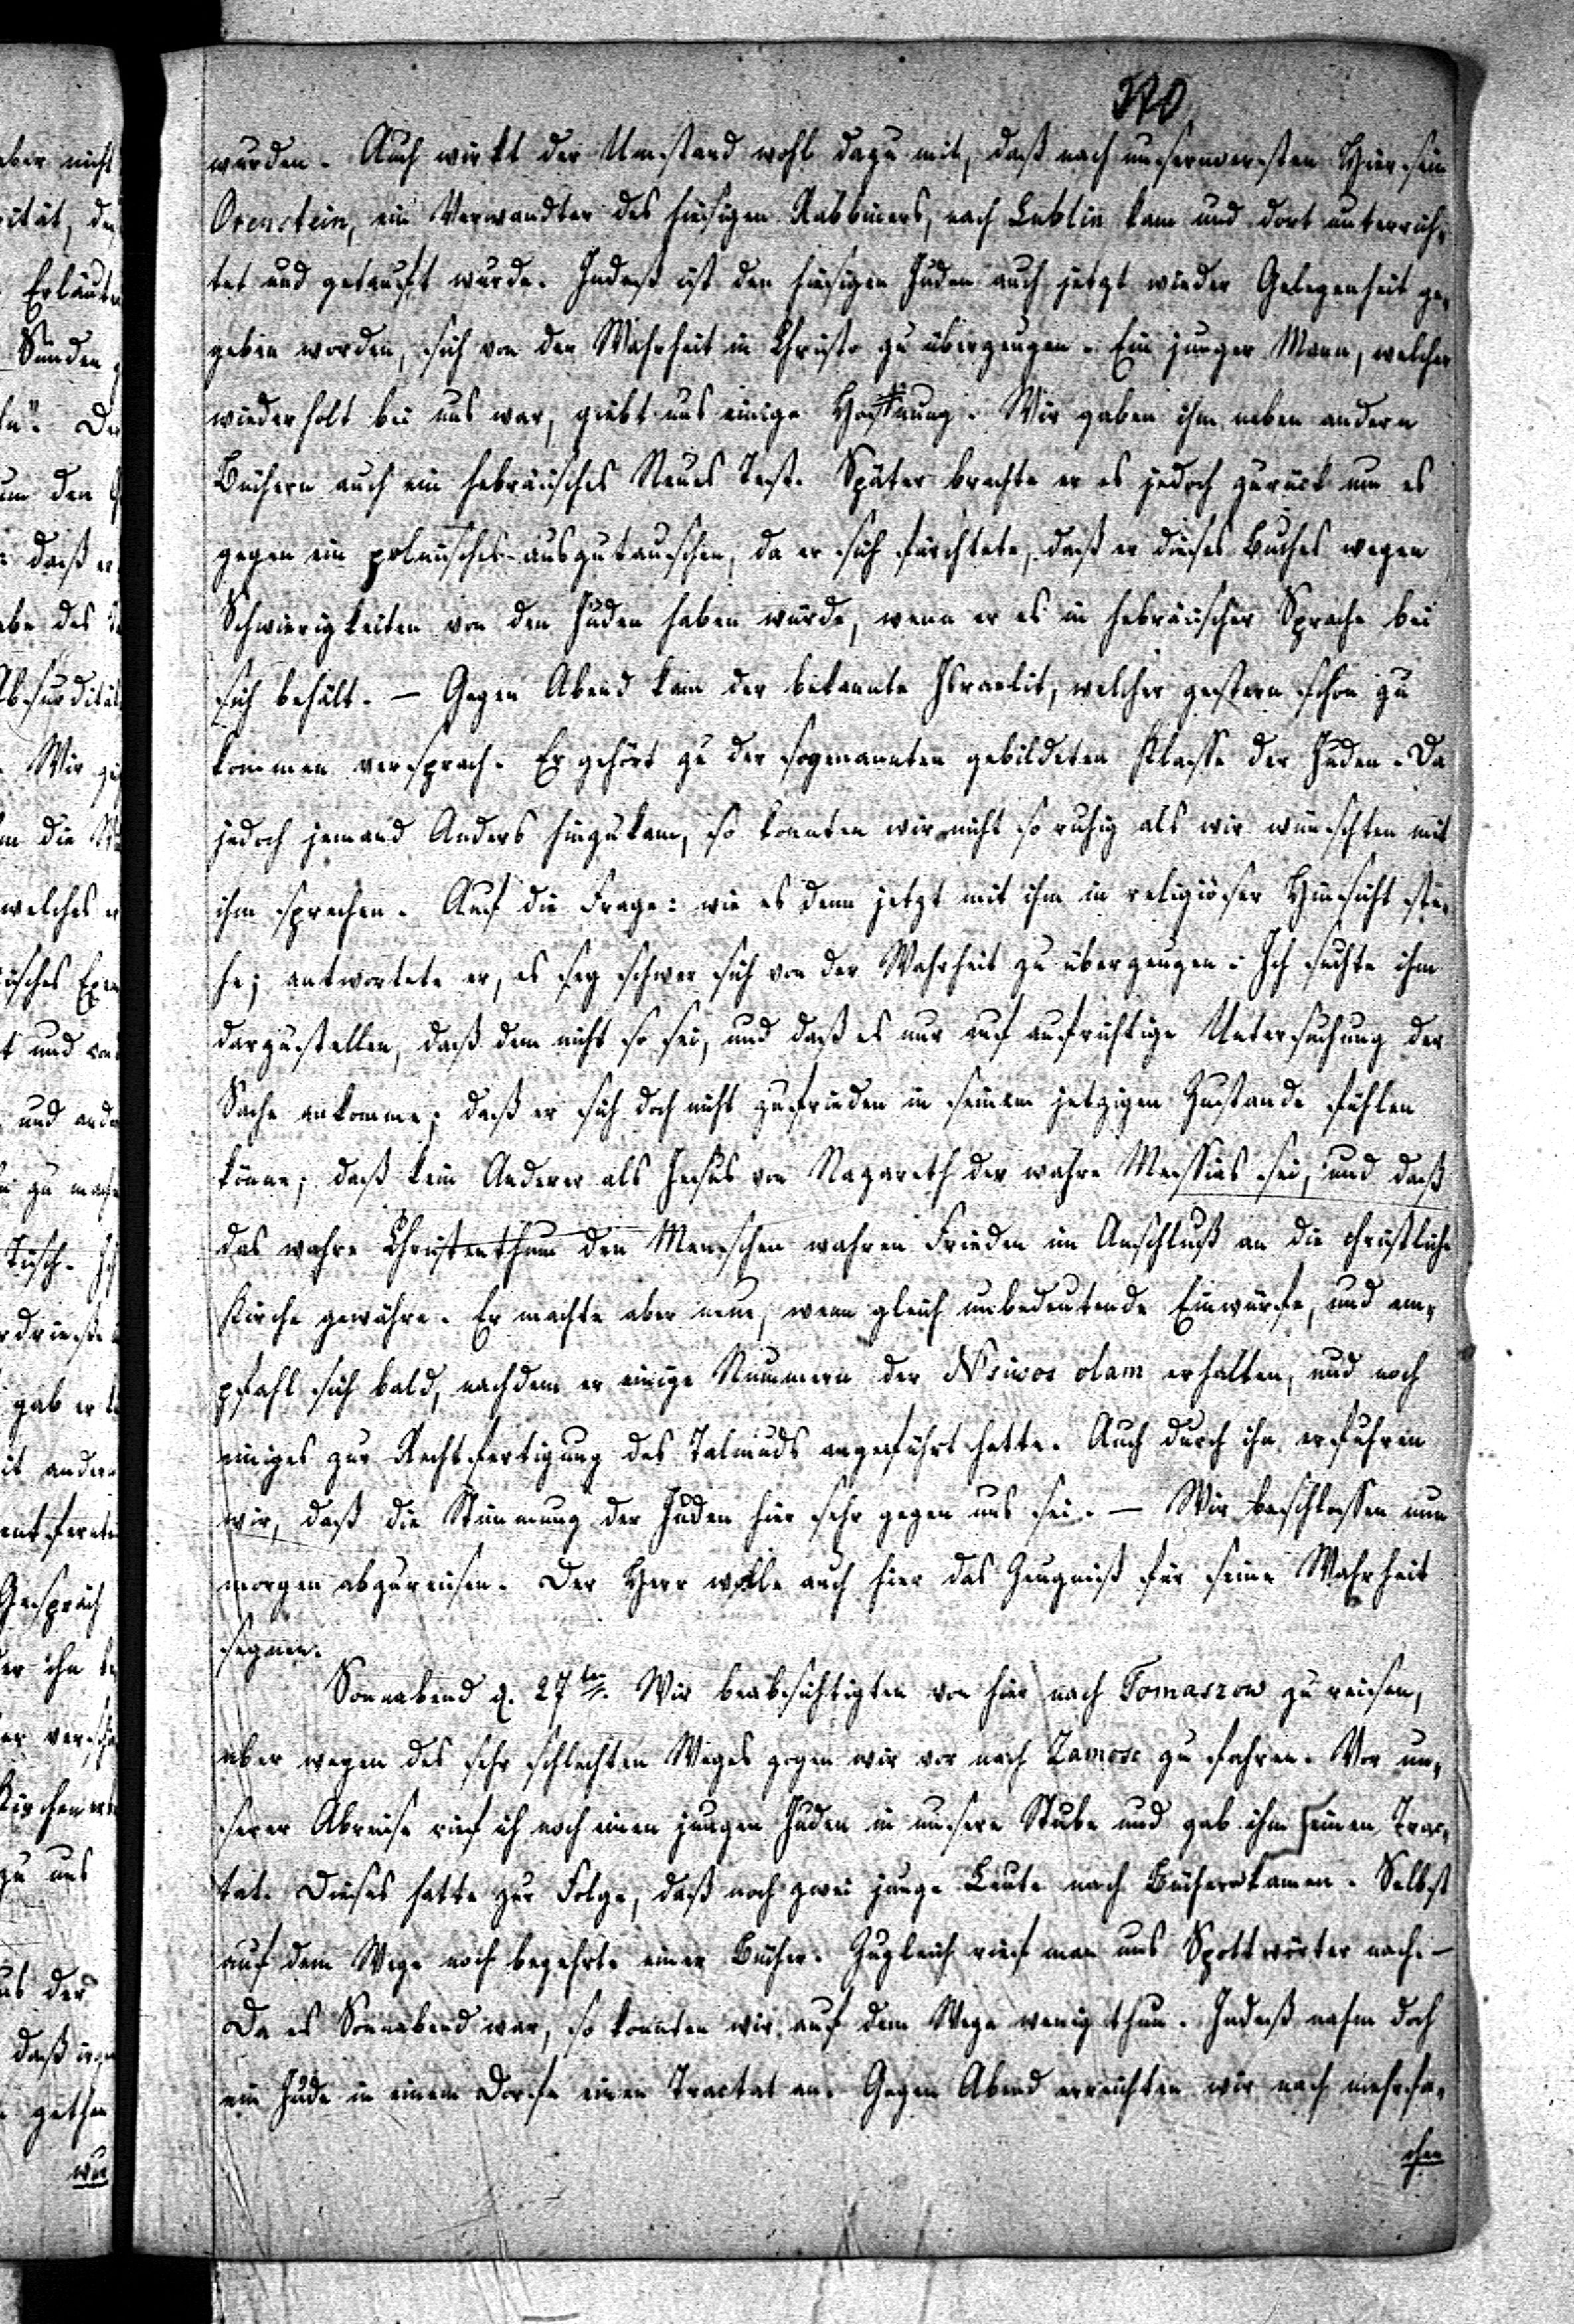 wurden. Auch wirkt der Umstand wohl dazu mit, daß nach unserm ersten Hiersein
Orenstein, ein Verwandter des hiesigen Rabbiners, nach Lublin kam und dort unterrich-
tet und getauft wurde. Indeß ist den hiesigen Juden auch jetzt wieder Gelegenheit ge-
geben worden, sich von der Wahrheit in Christo zu überzeugen. Ein junger Mann, welcher
wiederholt bei uns war, giebt uns einige Hoffnung. Wir gaben ihm neben andern
Büchern auch ein hebräisches Neues Test. Später brachte er es jedoch zurück um es
gegen ein polnisches auszutauschen, da er sich fürchtete, daß er dieses Buches wegen
Schwierigkeiten von den Juden haben würde, wenn er es in hebräischer Sprache bei
sich behält. — Gegen Abend kam der bekannte Israelit, welcher gestern schon zu
kommen versprach. Er gehört zu der sogenannten gebildeten Klasse der Juden. Da
jedoch jemand Anders hinzukam, so konnten wir nicht so ruhig als wir wünschten mit
ihm sprechen. Auf die Frage: wie es denn jetzt mit ihm in religiöser Hinsicht ste-
he; antwortete er, es sey schwer sich von der Wahrheit zu überzeugen. Ich suchte ihm
darzustellen, daß dem nicht so sei, und daß es nur auf aufrichtige Untersuchung der
Sache ankomme; daß er sich doch nicht zufrieden in seinem jetzigen Zustande fühlen
könne; daß kein Anderer als Jesus von Nazareth der wahre Messias sei, und daß
das wahre Christenthum den Menschen wahren Frieden im Anschluß an die christliche
Kirche gewähre. Er machte aber neue, wenn gleich unbedeutende Einwürfe, und em-
pfahl sich bald, nachdem er einige Nummern der Nsivos olam erhalten, und noch
einiges zur Rechtfertigung des Talmuds angeführt hatte. Auch durch ihn erfuhren
wir, daß die Stimmung der Juden hier sehr gegen uns sei. — Wir beschlossen nun
morgen abzureisen. Der Herr wolle auch hier das Zeugniß für seine Wahrheit
segnen.
Sonnabend d. 27ten. Wir beabsichtigten von hier nach Tomaszow zu reisen,
aber wegen des sehr schlechten Weges zogen wir vor nach Zamosc zu fahren. Vor un-
serer Abreise rief ich noch einen jungen Juden in unsere Stube und gab ihm einen Trac-
tat. Dieses hatte zur Folge, daß noch zwei junge Leute nach Büchern kamen. Selbst
auf dem Wege noch begehrte einer Bücher. Zugleich rief man uns Spottwörter nach. —
Da es Sonnabend war, so konnten wir auf dem Wege wenig thun. Indeß nahm doch
ein Jude in einem Dorfe einen Tractat an. Gegen Abend erreichten wir nach mehrfa-
chen